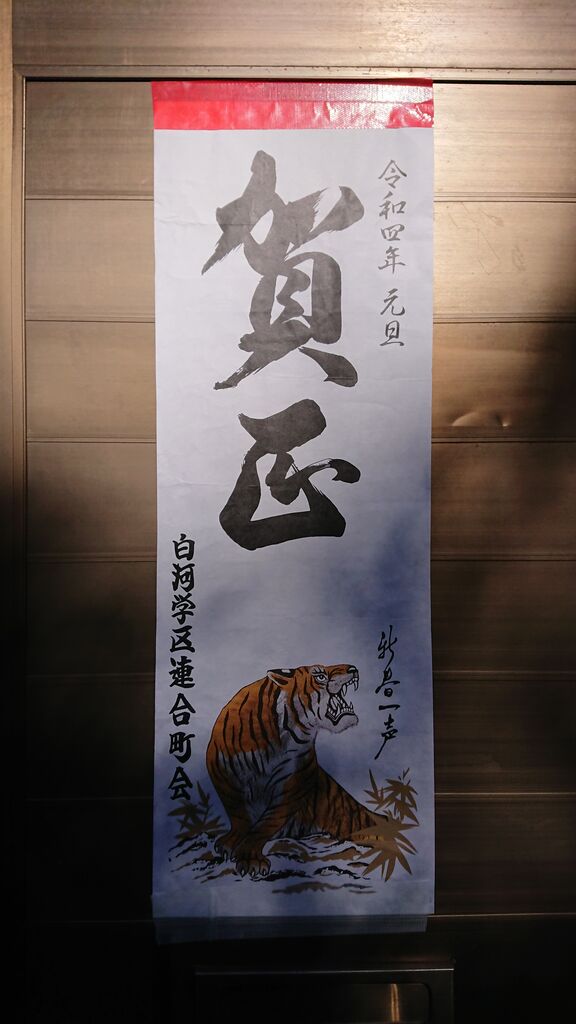 令和四年 元旦
賀正
新春一声
白河学区連合町会